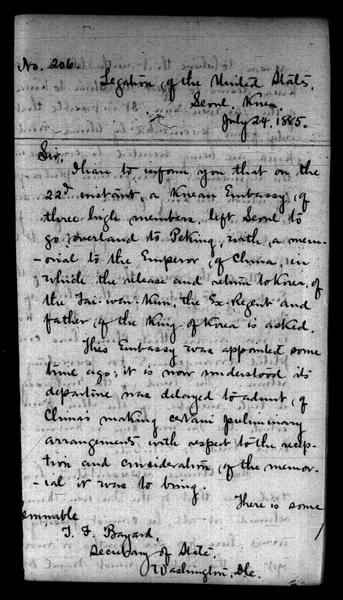 No. 206.
Legation of the United States,
Seoul, Korea,
July 24, 1885.
Sir,
I have to inform you that on the
22d instant, a Korean Embassy, of
three high members, left Seoul to
go overland to Peking, with a mem-
-orial to the Emperor of China, in
which the release and return to Korea, of
the Tai-wen-Kun, the Ex-Regent and
father of the King of Korea is asked.
This Embassy was appointed some
time ago; it is now understood its
departure was delayed to admit, of
China's making certain preliminary
arrangements with respect to the recep-
tion and consideration, of the memor-
-ial it was to bring.
There is some
T. F. Bayard,
Secretary of State,
Washington, D.C.